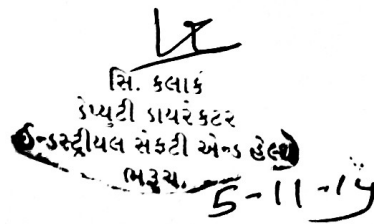 સિ. કલાર્ક
ડેપ્યુટી ડાયરેકટર
ઈન્ડસ્ટ્રીયલ સેફટી એન્ડ હેલ્થ
ભરૂચ.
5-11-14